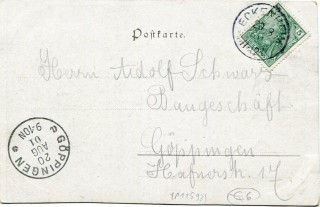 Postkarte.
Herrn Adolf Schwarz
Baugeschäft
Göppingen
Hafnerstr. 17.
GÖPPINGEN
20
AUG
01
9-10N